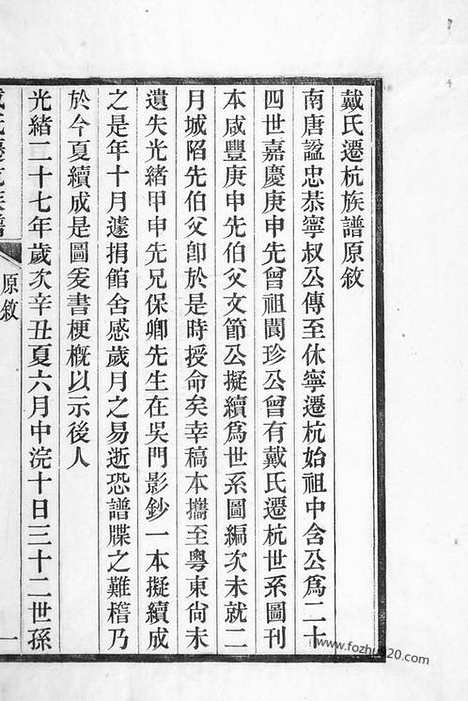 戴氏遷杭族譜原敘
南唐諡忠恭寧叔公傳至休寧遷杭始祖中含公爲二十
四世嘉慶庚申先曾祖閬珍公曾有戴氏遷杭世系圖刊
本咸豐庚申先伯父文節公擬續爲世系圖編次未就二
月城陷先伯父卽於是時授命矣幸稿本攜至粵東尙未
遺失光緒甲申先兄保卿先生在吳門影鈔一本擬續成
之是年十月遽捐館舍感歲月之易逝恐譜牒之難稽乃
於今夏續成是圖爰書梗概以示後人
光緒二十七年歲次辛丑夏六月中浣十日三十二世孫
戴氏遷杭族譜
原敘
一
www.fozhu920.com